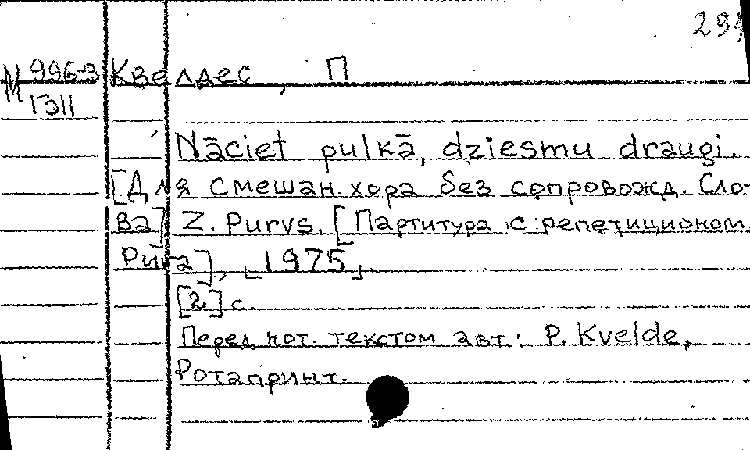 29
М 996-3 Квелдес, П
1311
Nāciet pulkā, dziesmu draugi.
[Для смешан. хора без сопровожд. Сло-
ва] Z. Purvs. [Партитура с репетиционом
Рига], [1975].
[2] с.
Перед нот. текстом авт: P. Kvelde,
Ротапринт.